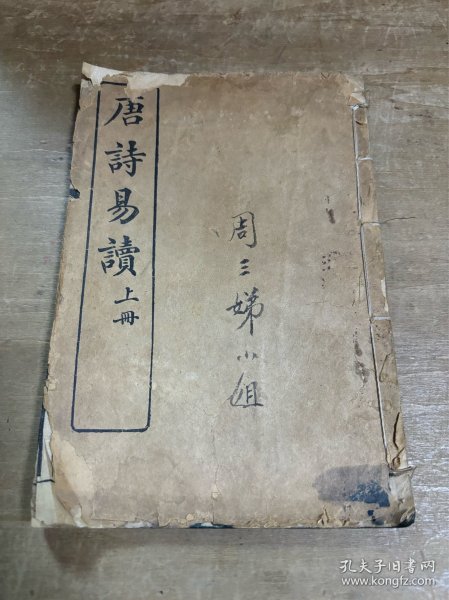 唐詩易讀上冊
周三娣小姐
孔夫子旧书网
www.kongfz.com